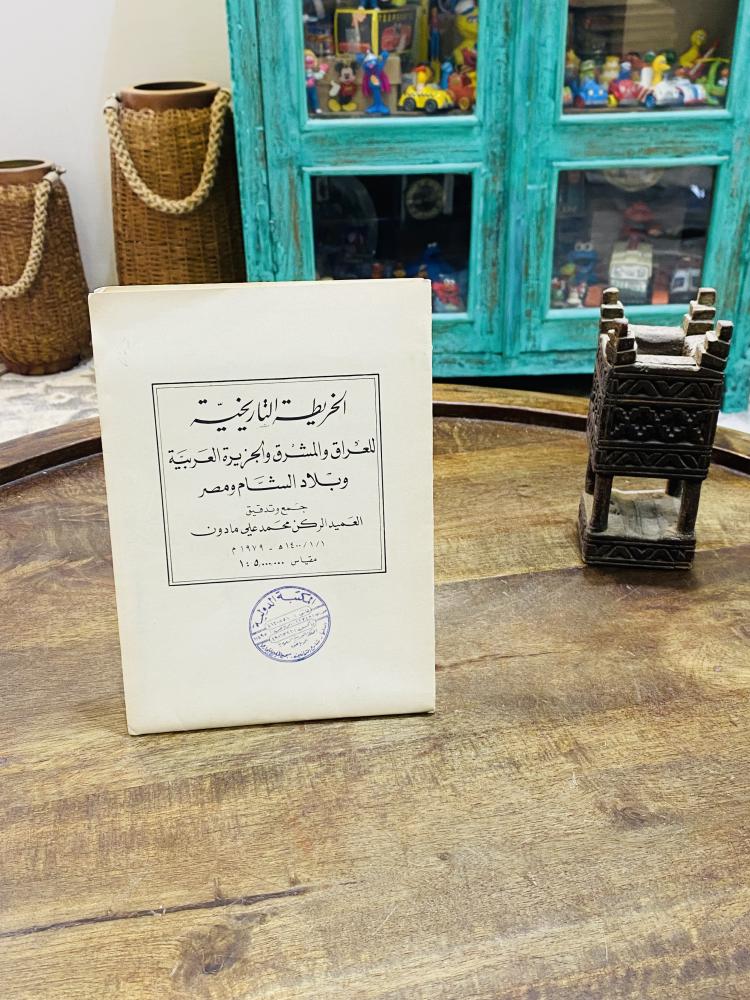 الخريطة التاريخية
للعراق والمشرق والجزيرة العربية
وبلاد الشام ومصر
جمع وتدقيق
العميد الركن محمد علي مادون
١/١/١٤٠٠ هـ - ١٩٧٩ م
مقياس ١:٥,٠٠٠,٠٠٠
المكتبة الدولية